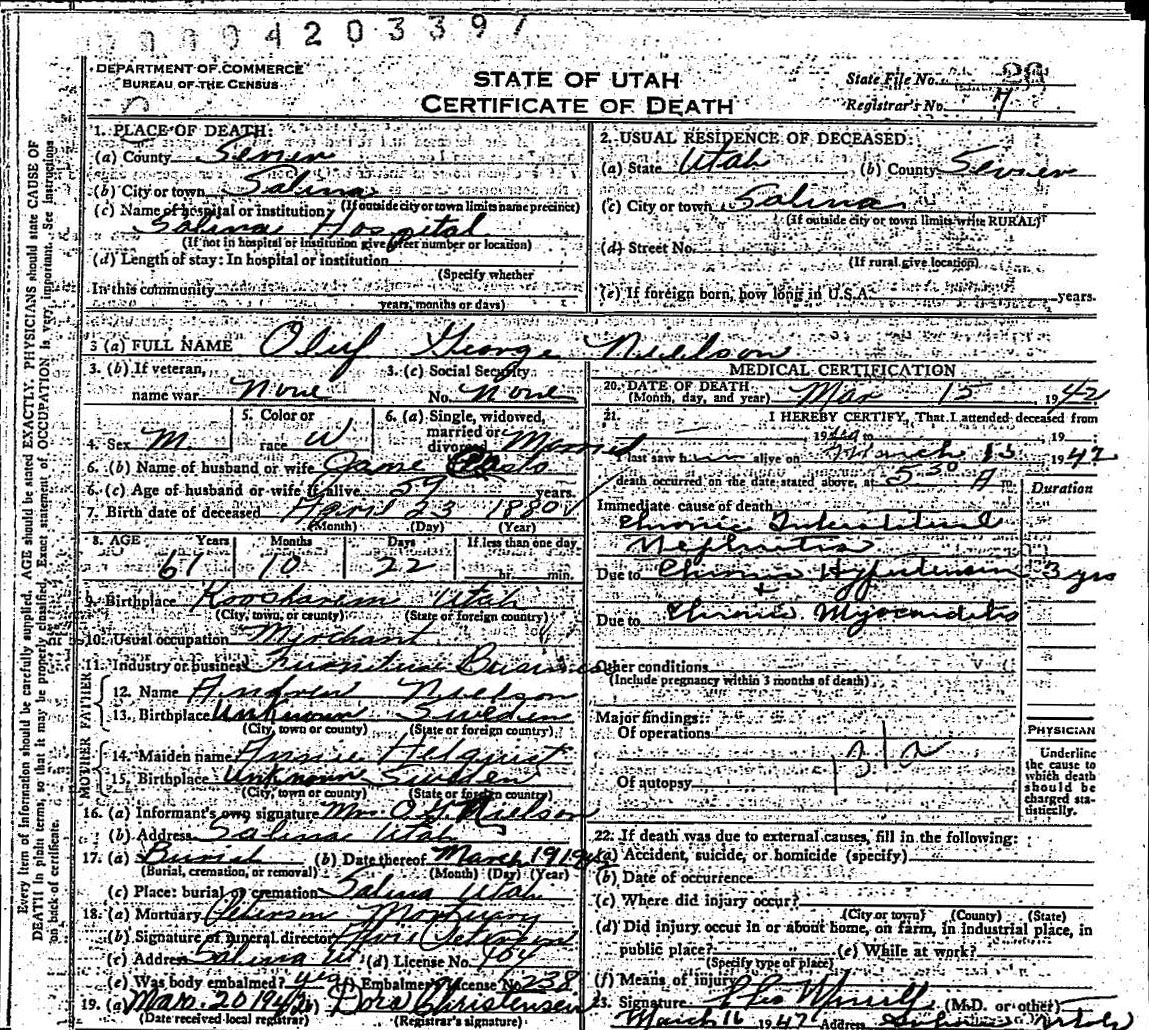 0004203397
DEPARTMENT OF COMMERCE
BUREAU OF THE CENSUS
STATE OF UTAH
CERTIFICATE OF DEATH
State File No. 29
Registrar's No. 7
Every item of information should be carefully supplied. AGE should be stated EXACTLY. PHYSICIANS should state CAUSE OF
DEATH in plain terms, so that it may be properly classified. Exact statement of OCCUPATION is very important. See instructions
on back of certificate.
1. PLACE OF DEATH:
(a) County Sevier
(b) City or town Salina
(If outside city or town limits name precinct)
(c) Name of hospital or institution:
Salina Hospital
(If not in hospital or institution give street number or location)
(d) Length of stay: In hospital or institution
(Specify whether
In this community
years, months or days)
2. USUAL RESIDENCE OF DECEASED:
(a) State Utah (b) County Sevier
(c) City or town Salina
(If outside city or town limits write RURAL)
(d) Street No.
(If rural give location)
(e) If foreign born, how long in U.S.A. years.
3 (a) FULL NAME Oluf George Nielson
3. (b) If veteran,
name war None
3. (c) Social Security
No. None
4. Sex M
5. Color or
race W
6. (a) Single, widowed,
married or
divorced Married
6. (b) Name of husband or wife Jane Casto
6. (c) Age of husband or wife if alive 59 years.
7. Birth date of deceased April 23 1880
(Month) (Day) (Year)
8. AGE Years Months Days If less than one day
61 10 22 hr. min.
9. Birthplace Koosharem Utah
(City, town, or county) (State or foreign country)
10. Usual occupation Merchant
11. Industry or business Furniture Business
FATHER
12. Name Andrew Nielson
13. Birthplace Unknown Sweden
(City, town or county) (State or foreign country)
MOTHER
14. Maiden name Annie Helquist
15. Birthplace Unknown Sweden
(City, town or county) (State or foreign country)
16. (a) Informant's own signature Mrs O G Nielson
(b) Address Salina Utah
17. (a) Burial (b) Date thereof March 19 1942
(Burial, cremation, or removal) (Month) (Day) (Year)
(c) Place: burial or cremation Salina Utah
18. (a) Mortuary Peterson Mortuary
(b) Signature of funeral director Peterson
(c) Address Salina Ut (d) License No. 404
(e) Was body embalmed? yes (f) Embalmer's License No. 238
19. (a) Mar. 20 1942 (b) Dora Christensen
(Date received local registrar) (Registrar's signature)
MEDICAL CERTIFICATION
20. DATE OF DEATH Mar 15 1942
(Month, day, and year)
21. I HEREBY CERTIFY, That I attended deceased from
19 to , 19
I last saw him alive on March 15 1942
death occurred on the date stated above, at 5 30 A m.
Duration
Immediate cause of death
Chronic Interstitial
Nephritis
Due to Chronic Hypertension 3 yrs
+
Due to Chronic Myocarditis
Other conditions
(Include pregnancy within 3 months of death)
Major findings:
Of operations
131a
Of autopsy
PHYSICIAN
Underline
the cause to
which death
should be
charged sta-
tistically.
22. If death was due to external causes, fill in the following:
(a) Accident, suicide, or homicide (specify)
(b) Date of occurrence
(c) Where did injury occur?
(City or town) (County) (State)
(d) Did injury occur in or about home, on farm, in industrial place, in
public place? (e) While at work?
(Specify type of place)
(f) Means of injury
23. Signature (M.D. or other)
March 16 1942 Address Utah